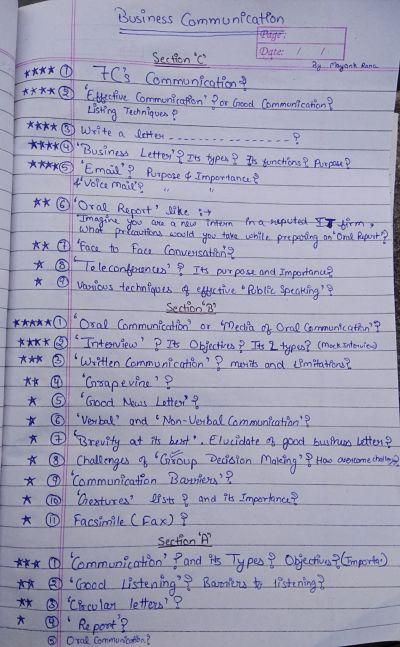 Business Communication
Page:
Date: / /
By Mayank Rana
Section 'C'
**** ① 7C's Communication?
**** ② 'Effective Communication'? or Good Communication?
Listing Techniques?
**** ③ Write a letter ---------------- ?
**** ④ 'Business Letter'? Its types? Its functions? Purpose?
**** ⑤ 'Email'? Purpose & Importance?
& 'Voice Mail'? " "
** ⑥ 'Oral Report' like :→
'Imagine you are a new intern in a reputed IT firm,
What precautions would you take while preparing an 'Oral Report'?
** ⑦ 'Face to Face Conversation'?
* ⑧ 'Teleconferences'? Its purpose and Importance?
* ⑨ Various techniques of effective 'Public Speaking'?
Section 'B'
***** ① 'Oral Communication' or 'Media of Oral Communication'?
**** ② 'Interview'? Its Objectives? Its 2 types? (Mock Interview)
*** ③ 'Written Communication'? merits and Limitations?
** ④ 'Grapevine'?
* ⑤ 'Good News Letter'?
* ⑥ 'Verbal' and 'Non-Verbal Communication'?
* ⑦ 'Brevity at its best'. Elucidate of good business Letter?
* ⑧ Challenges of 'Group Decision Making'? How overcome challenges?
* ⑨ 'Communication Barriers'?
* ⑩ 'Gextures' lists? and its Importance?
* ⑪ Facsimile (Fax)?
Section 'A'
*** ① 'Communication'? and its Types? Objectives? (Importa.)
** ② 'Good Listening'? Barriers to listening?
** ③ 'Circular letters'?
* ④ 'Report'?
⑤ Oral Communication?